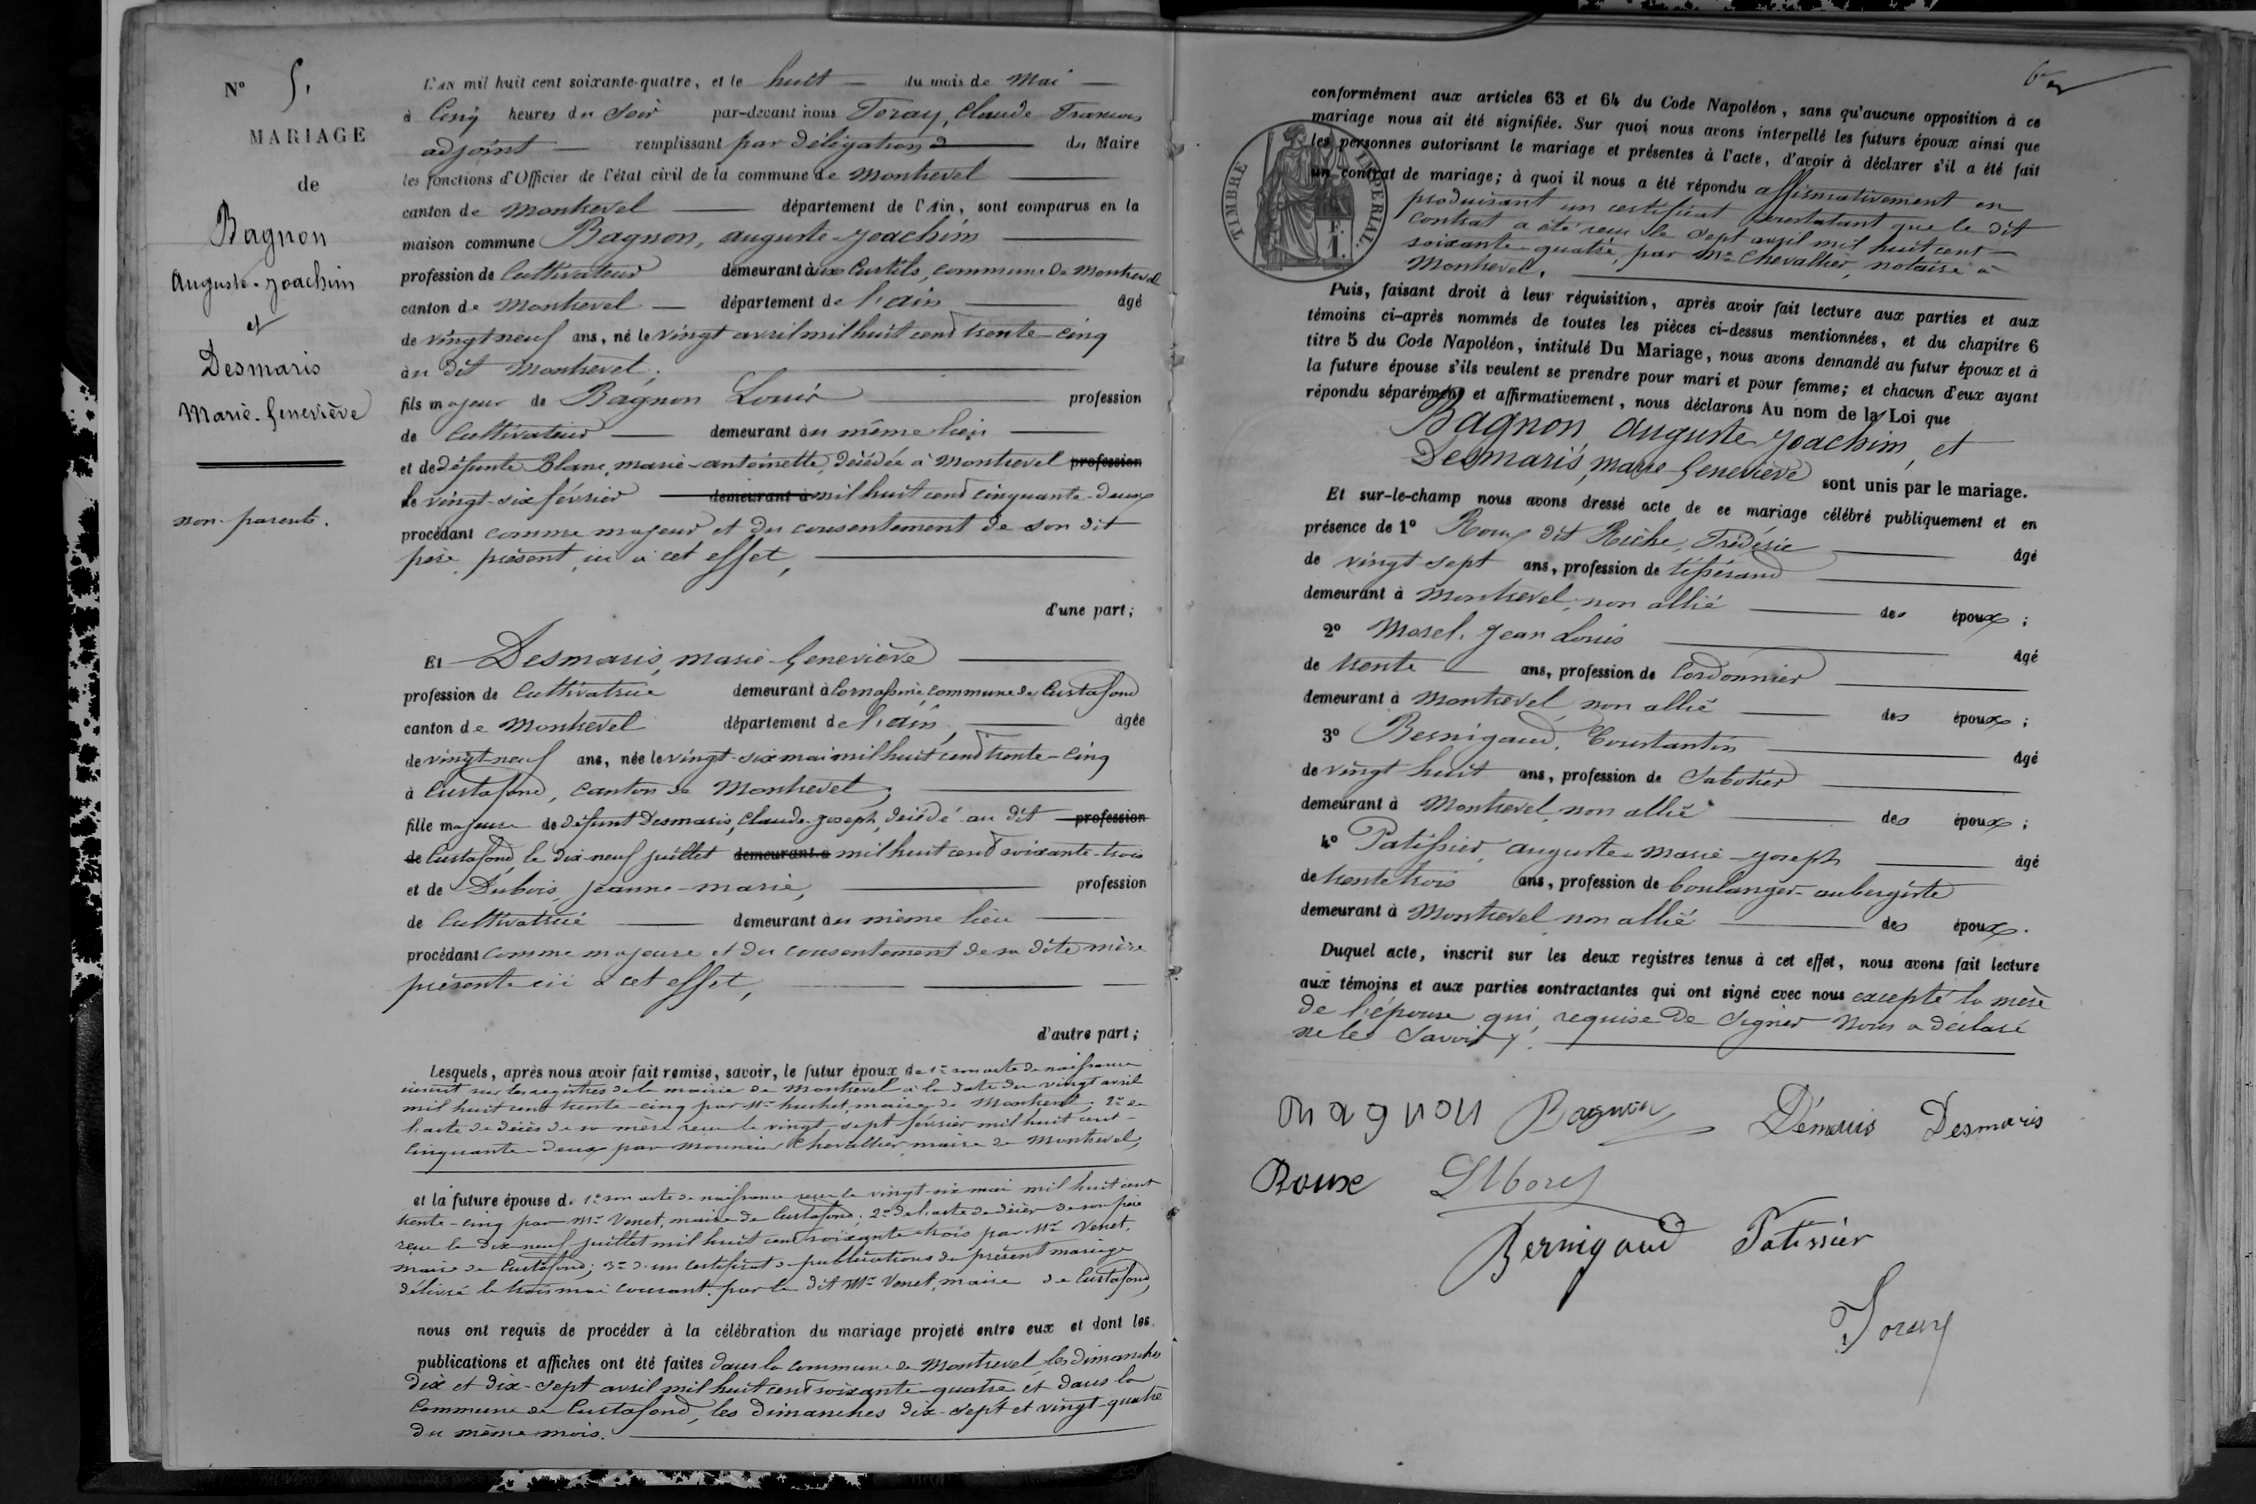 N° 5.
MARIAGE
de
Bagnon
Auguste-Joachim
et
Desmaris
Marie-Geneviève
non parents.
L'AN mil huit cent soixante-quatre, et le huit du mois de Mai
à Cinq heures du Soir par-devant nous Foray, Claude François
adjoint remplissant par délégation du Maire
les fonctions d'Officier de l'état civil de la commune de Montrevel
canton de Montrevel département de l'Ain, sont comparus en la
maison commune Bagnon, auguste-Joachim
profession de Cultivateur demeurant aux Curtils, commune de Montrevel
canton de Montrevel département de l'ain âgé
de vingt neuf ans, né le vingt avril mil huit cent trente-cinq
au dit Montrevel,
fils majeur de Bagnon Louis profession
de Cultivateur demeurant au même lieu
et de défunte Blanc, marie-antoinette, décédée à Montrevel profession
le vingt-six février demeurant à mil huit cent cinquante-deux
procédant comme majeur et du consentement de son dit
père, présent ici à cet effet,
d'une part;
Et Desmaris, marie-Geneviève
profession de Cultivatrice demeurant à commune de Curtafond
canton de Montrevel département de l'ain, âgée
de vingt-neuf ans, née le vingt-six mai mil huit cent trente-cinq
à Curtafond, canton de Montrevel,
fille majeure de défunt Desmaris, Claude-Joseph, décédé au dit profession
de Curtafond, le dix-neuf juillet demeurant à mil huit cent soixante-trois
et de Dubois, Jeanne-marie, profession
de Cultivatrice demeurant au même lieu
procédant comme majeure et du consentement de sa dite mère
présente ici à cet effet,
d'autre part;
Lesquels, après nous avoir fait remise, savoir, le futur époux de 1° son acte de naissance
inscrit sur les registres de la mairie de Montrevel à la date du vingt avril
mil huit cent trente-cinq par Mr maire de Montrevel; 2° de
l'acte de décès de sa mère reçu le vingt-sept février mil huit cent
cinquante-deux par Monsieur Chevallier, maire de Montrevel,
et la future épouse de 1° son acte de naissance reçu le vingt-six mai mil huit cent
trente-cinq par Mr Venet, maire de Curtafond; 2° de l'acte de décès de son père
reçu le dix-neuf juillet mil huit cent soixante trois par Mr Venet,
maire de Curtafond; 3° d'un certificat de publications du présent mariage
délivré le trois mai courant, par le dit Mr Venet, maire de Curtafond,
nous ont requis de procéder à la célébration du mariage projeté entre eux et dont les
publications et affiches ont été faites dans la commune de Montrevel, les dimanches
dix et dix-sept avril mil huit cent soixante-quatre et dans la
commune de Curtafond, les dimanches dix-sept et vingt-quatre
du même mois.
conformément aux articles 63 et 64 du Code Napoléon, sans qu'aucune opposition à ce
mariage nous ait été signifiée. Sur quoi nous avons interpellé les futurs époux ainsi que
les personnes autorisant le mariage et présentes à l'acte, d'avoir à déclarer s'il a été fait
un contrat de mariage; à quoi il nous a été répondu affirmativement en
produisant un certificat constatant que le dit
contrat a été reçu le sept avril mil huit cent
soixante-quatre, par Me Chevallier, notaire à
Montrevel.
TIMBRE IMPERIAL.
1 F.
Puis, faisant droit à leur réquisition, après avoir fait lecture aux parties et aux
témoins ci-après nommés de toutes les pièces ci-dessus mentionnées, et du chapitre 6
titre 5 du Code Napoléon, intitulé Du Mariage, nous avons demandé au futur époux et à
la future épouse s'ils veulent se prendre pour mari et pour femme; et chacun d'eux ayant
répondu séparément et affirmativement, nous déclarons Au nom de la Loi que
Bagnon, auguste-Joachim, et
Desmaris, marie-Geneviève sont unis par le mariage.
Et sur-le-champ nous avons dressé acte de ce mariage célébré publiquement et en
présence de 1° Roux dit Riche, Frédéric âgé
de vingt-sept ans, profession de tisserand
demeurant à Montrevel, non allié des époux;
2° Morel, Jean Louis âgé
de trente ans, profession de Cordonnier
demeurant à Montrevel, non allié des époux;
3° Bernigaud, Constantin âgé
de vingt huit ans, profession de Sabotier
demeurant à Montrevel, non allié des époux;
4° Patissier, auguste-marie-Joseph âgé
de trente trois ans, profession de boulanger-aubergiste
demeurant à Montrevel, non allié des époux.
Duquel acte, inscrit sur les deux registres tenus à cet effet, nous avons fait lecture
aux témoins et aux parties contractantes qui ont signé avec nous excepté la mère
de l'épouse qui, requise de signer nous a déclaré
ne le savoir.
Bagnon Démaris Desmaris
Roux L Morel
Bernigaud Patissier
Foray